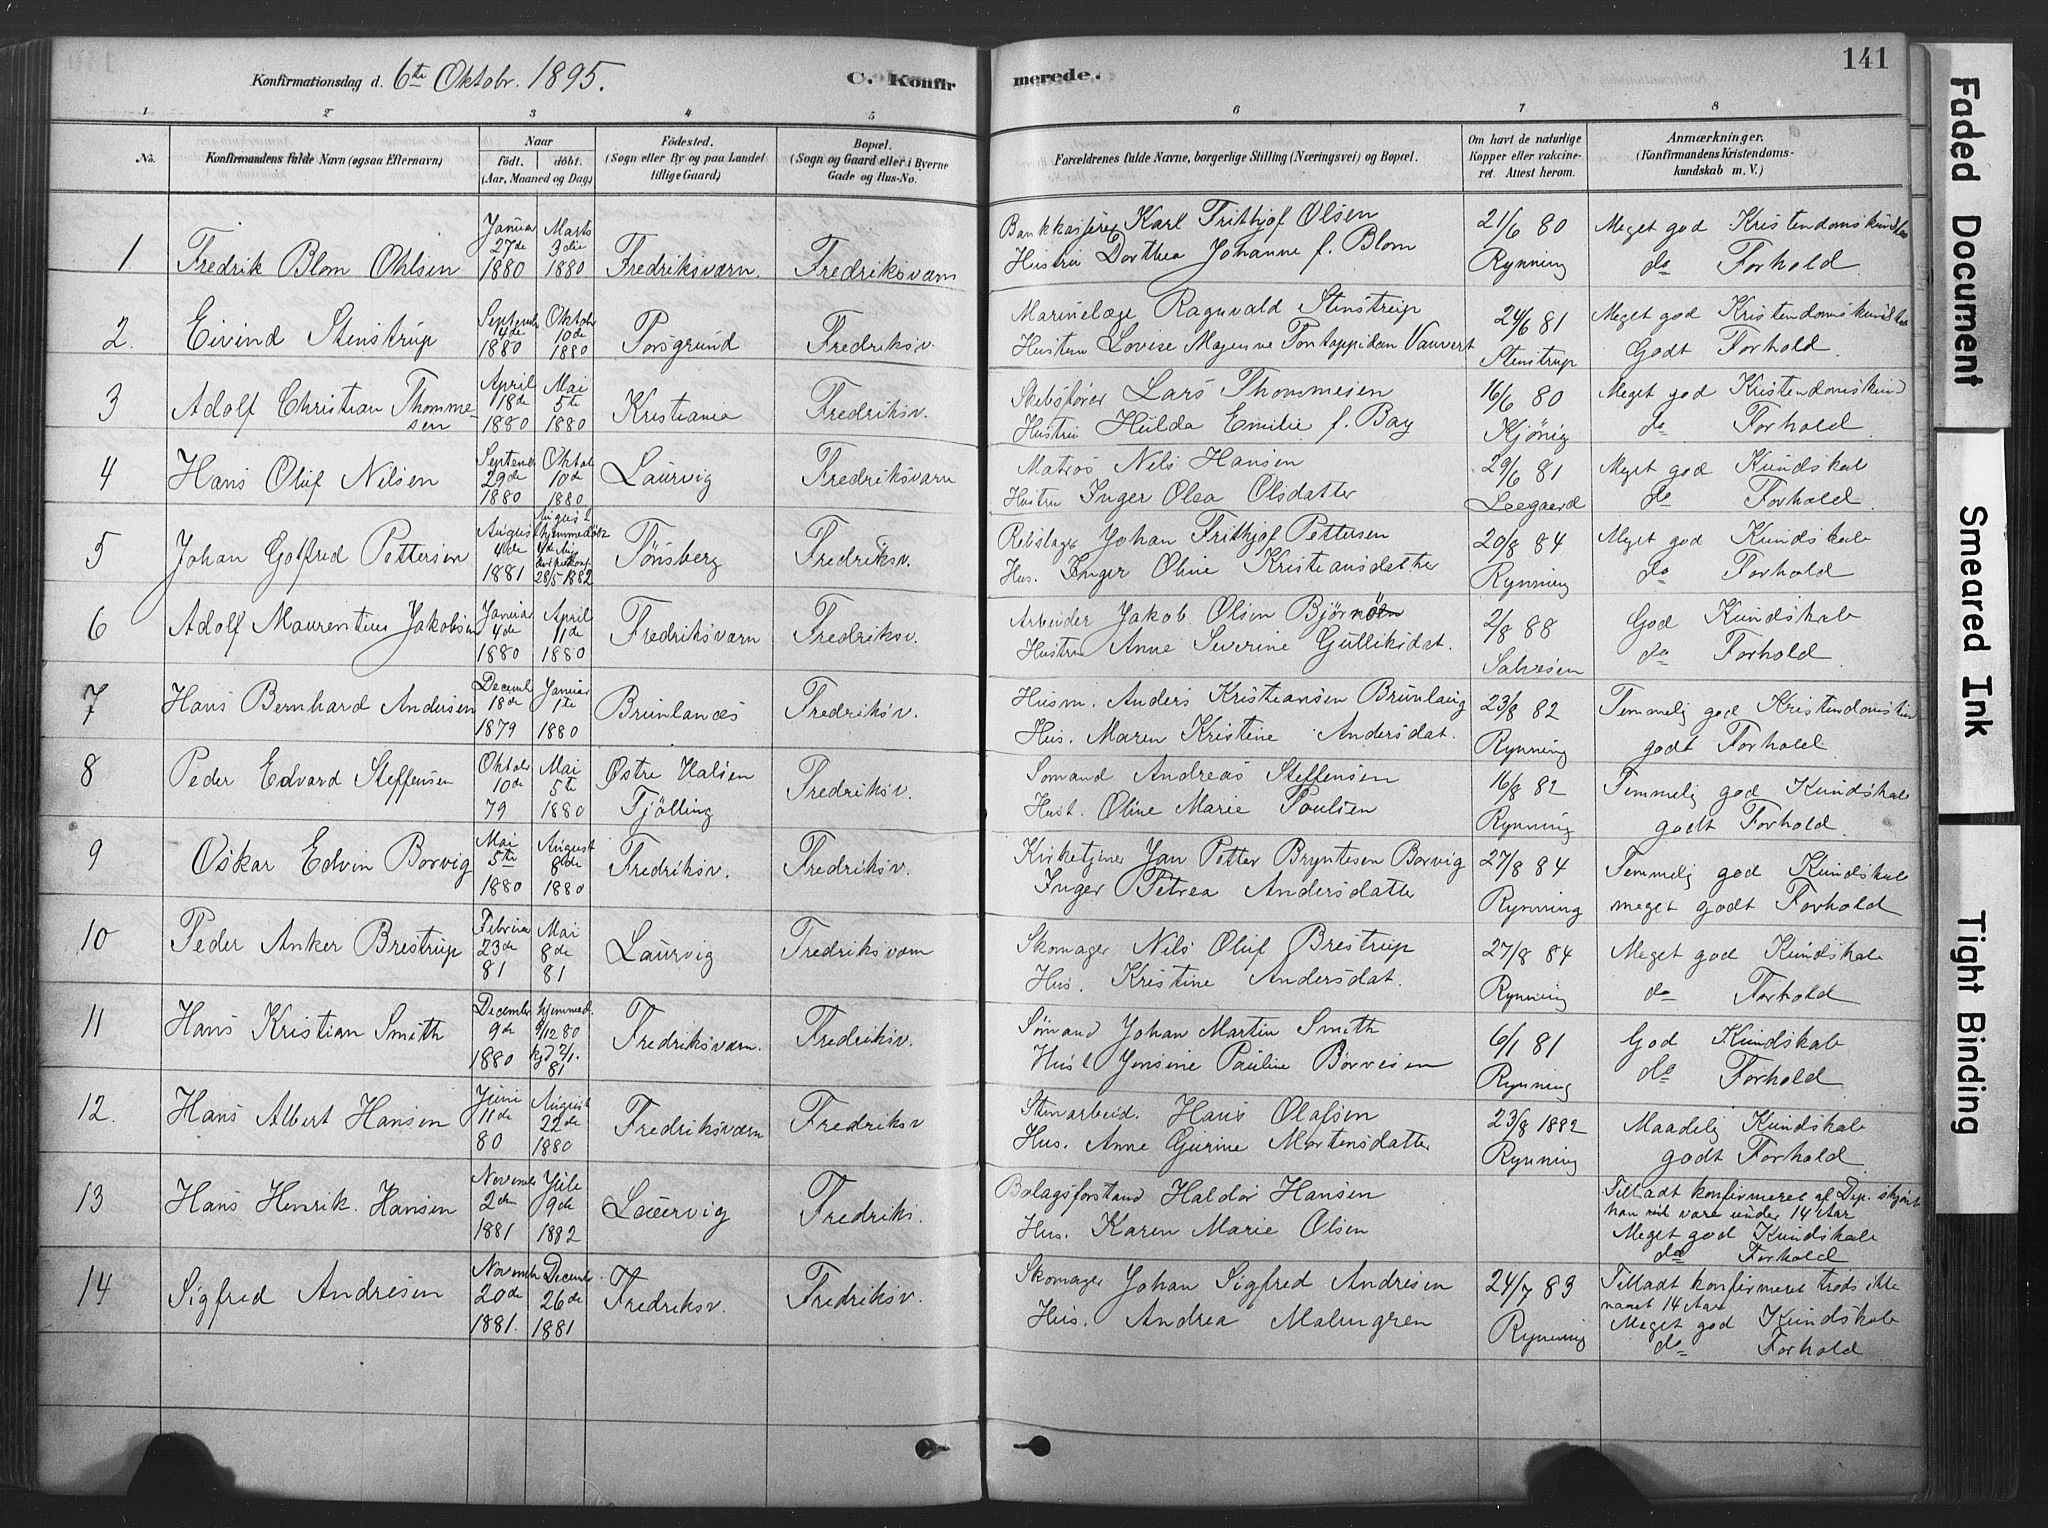 Konfirmationsdag d. 6te Oktobr. 1895.
C. Konfir
merede.
141
1 2 3 4 5 6 7 8
No.
Konfirmandens fulde Navn (ogsaa Efternavn)
Naar
födt. döbt.
(Aar, Maaned og Dag)
Födested.
(Sogn eller By og paa Landet
tillige Gaard)
Bopæl.
(Sogn og Gaard eller i Byerne
Gade og Hus-No.
Forældrenes fulde Navne, borgerlige Stilling (Næringsvei) og Bopæl.
Om havt de naturlige
Kopper eller vakcine-
ret. Attest herom.
Anmærkninger.
(Konfirmandens Kristendoms-
kundskab m. V.)
1
Fredrik Blom Ohlsen
Januar
27de
1880
Marts
3die
1880
Fredriksværn.
Fredriksværn
Bankkasserer Karl Frithjof Olsen
Hustru Dorthea Johanne f. Blom
21/6 80
Rynning
Meget god Kristendomskundskab
do Forhold
2.
Eivind Stenstrup
Septemb
4de
1880
Oktober
10de
1880
Porsgrund
Fredriksv.
Marinelæge Ragnvald Stenstrup
Hustru Lovise Magenne Pontoppidan Vauvert
24/6 81
Stenstrup
Meget god Kristendomskundskab
Godt Forhold.
3
Adolf Christian Thomme-
sen
April
18de
1880
Mai
5te
1880
Kristiania
Fredriksv.
Skibsfører Lars Thommesen
Hustru Hulda Emilie f. Bay
16/6 80
Kjønig
Meget god Kristendomskund
do Forhold.
4
Hans Oluf Nilsen
Septemb
29de
1880
Oktob
10de
1880
Laurvig
Fredriksværn
Matros Nils Hansen
Hustru Inger Olea Olsdatter
29/6 81
Leegaard
Meget god Kundskab
do Forhold
5
Johan Gotfred Pettersen
August
4de
1881
August
hjemmedøbt
4de Aug
28/5 1882
Tönsberg
Fredriksv.
Rebslager Johan Frithjof Pettersen
Hus. Inger Oline Kristiansdatter
20/8 84
Rynning
Meget god Kundskab
do Forhold
6
Adolf Maurentius Jakobsen
Januar
4de
1880
April
11de
1880
Fredriksværn
Fredriksv.
Arbeider Jakob Olsen Bjørnöen
Hustru Anne Severine Gulliksdat.
2/8 88
Salvesen
God Kundskab
do Forhold
7
Hans Bernhard Andersen
Decemb
18de
1879
Januar
1te
1880
Brunlanes
Fredriksv.
Husm. Anders Kristiansen Brunlaug
Hus. Maren Kristine Andersdat.
23/8 82
Rynning
Temmelig god Kristendomskun
godt Forhold.
8
Peder Edvard Steffensen
Oktob
10de
79
Mai
5te
1880
Østre Halsen
Tjölling
Fredriksv.
Sømand Andreas Steffensen
Hust. Oline Marie Poulsen
16/8 82
Rynning
Temmelig god Kundskab
godt Forhold.
9
Oskar Edvin Borvig
Mai
5te
1880
August
8de
1880
Fredriksv.
Fredriksv.
Kirketjener Jan Petter Bryntesen Borvig
Inger Petrea Andersdatter
27/8 84
Rynning
Temmelig god Kundskab
meget godt Forhold
10
Peder Anker Brestrup
Februar
23de
81
Mai
8de
81
Laurvig
Fredriksværn
Skomager Nils Oluf Brestrup
Hus. Kristine Andersdat.
27/8 84
Rynning
Meget god Kundskab
do Forhold
11
Hans Kristian Smith
December
9de
1880
hjemmed.
9/12 80
kjd 2/1.
81
Fredriksværn.
Fredriksv.
Sömand Johan Martin Smith
Hust Jensine Pauline Børvesen
6/1 81
Rynning
God Kundskab
do Forhold
12.
Hans Albert Hansen
Juni
11de
80
August
22de
1880
Fredriksværn
Fredriksv
Stenarbeid. Hans Olafsen
Hus. Anne Gurine Mortensdatter
23/8 1882
Rynning
Maadelig Kundskab
godt Forhold
13
Hans Henrik. Hansen
Novemb
2den
1881
Juli
9de
1882
Laurvig
Fredriks.
Bolagsforstand Haldor Hansen
Hus. Karen Marie Olsen
Tilladt konfirmeret af Dep. skjønt
han vil være under 14 Aar
Meget god Kundskab
do Forhold
14
Sigfred Andresen
Novemb
20de
1881.
Decemb
26de
1881
Fredriksv.
Fredriksv.
Skomager Johan Sigfred Andresen
Hus. Andrea Malmgren
24/7 83
Rynning
Tilladt konfirmeret trods ikke
naaet 14 Aar
Meget god Kundskab
do Forhold
Faded Document
Smeared Ink
Tight Binding